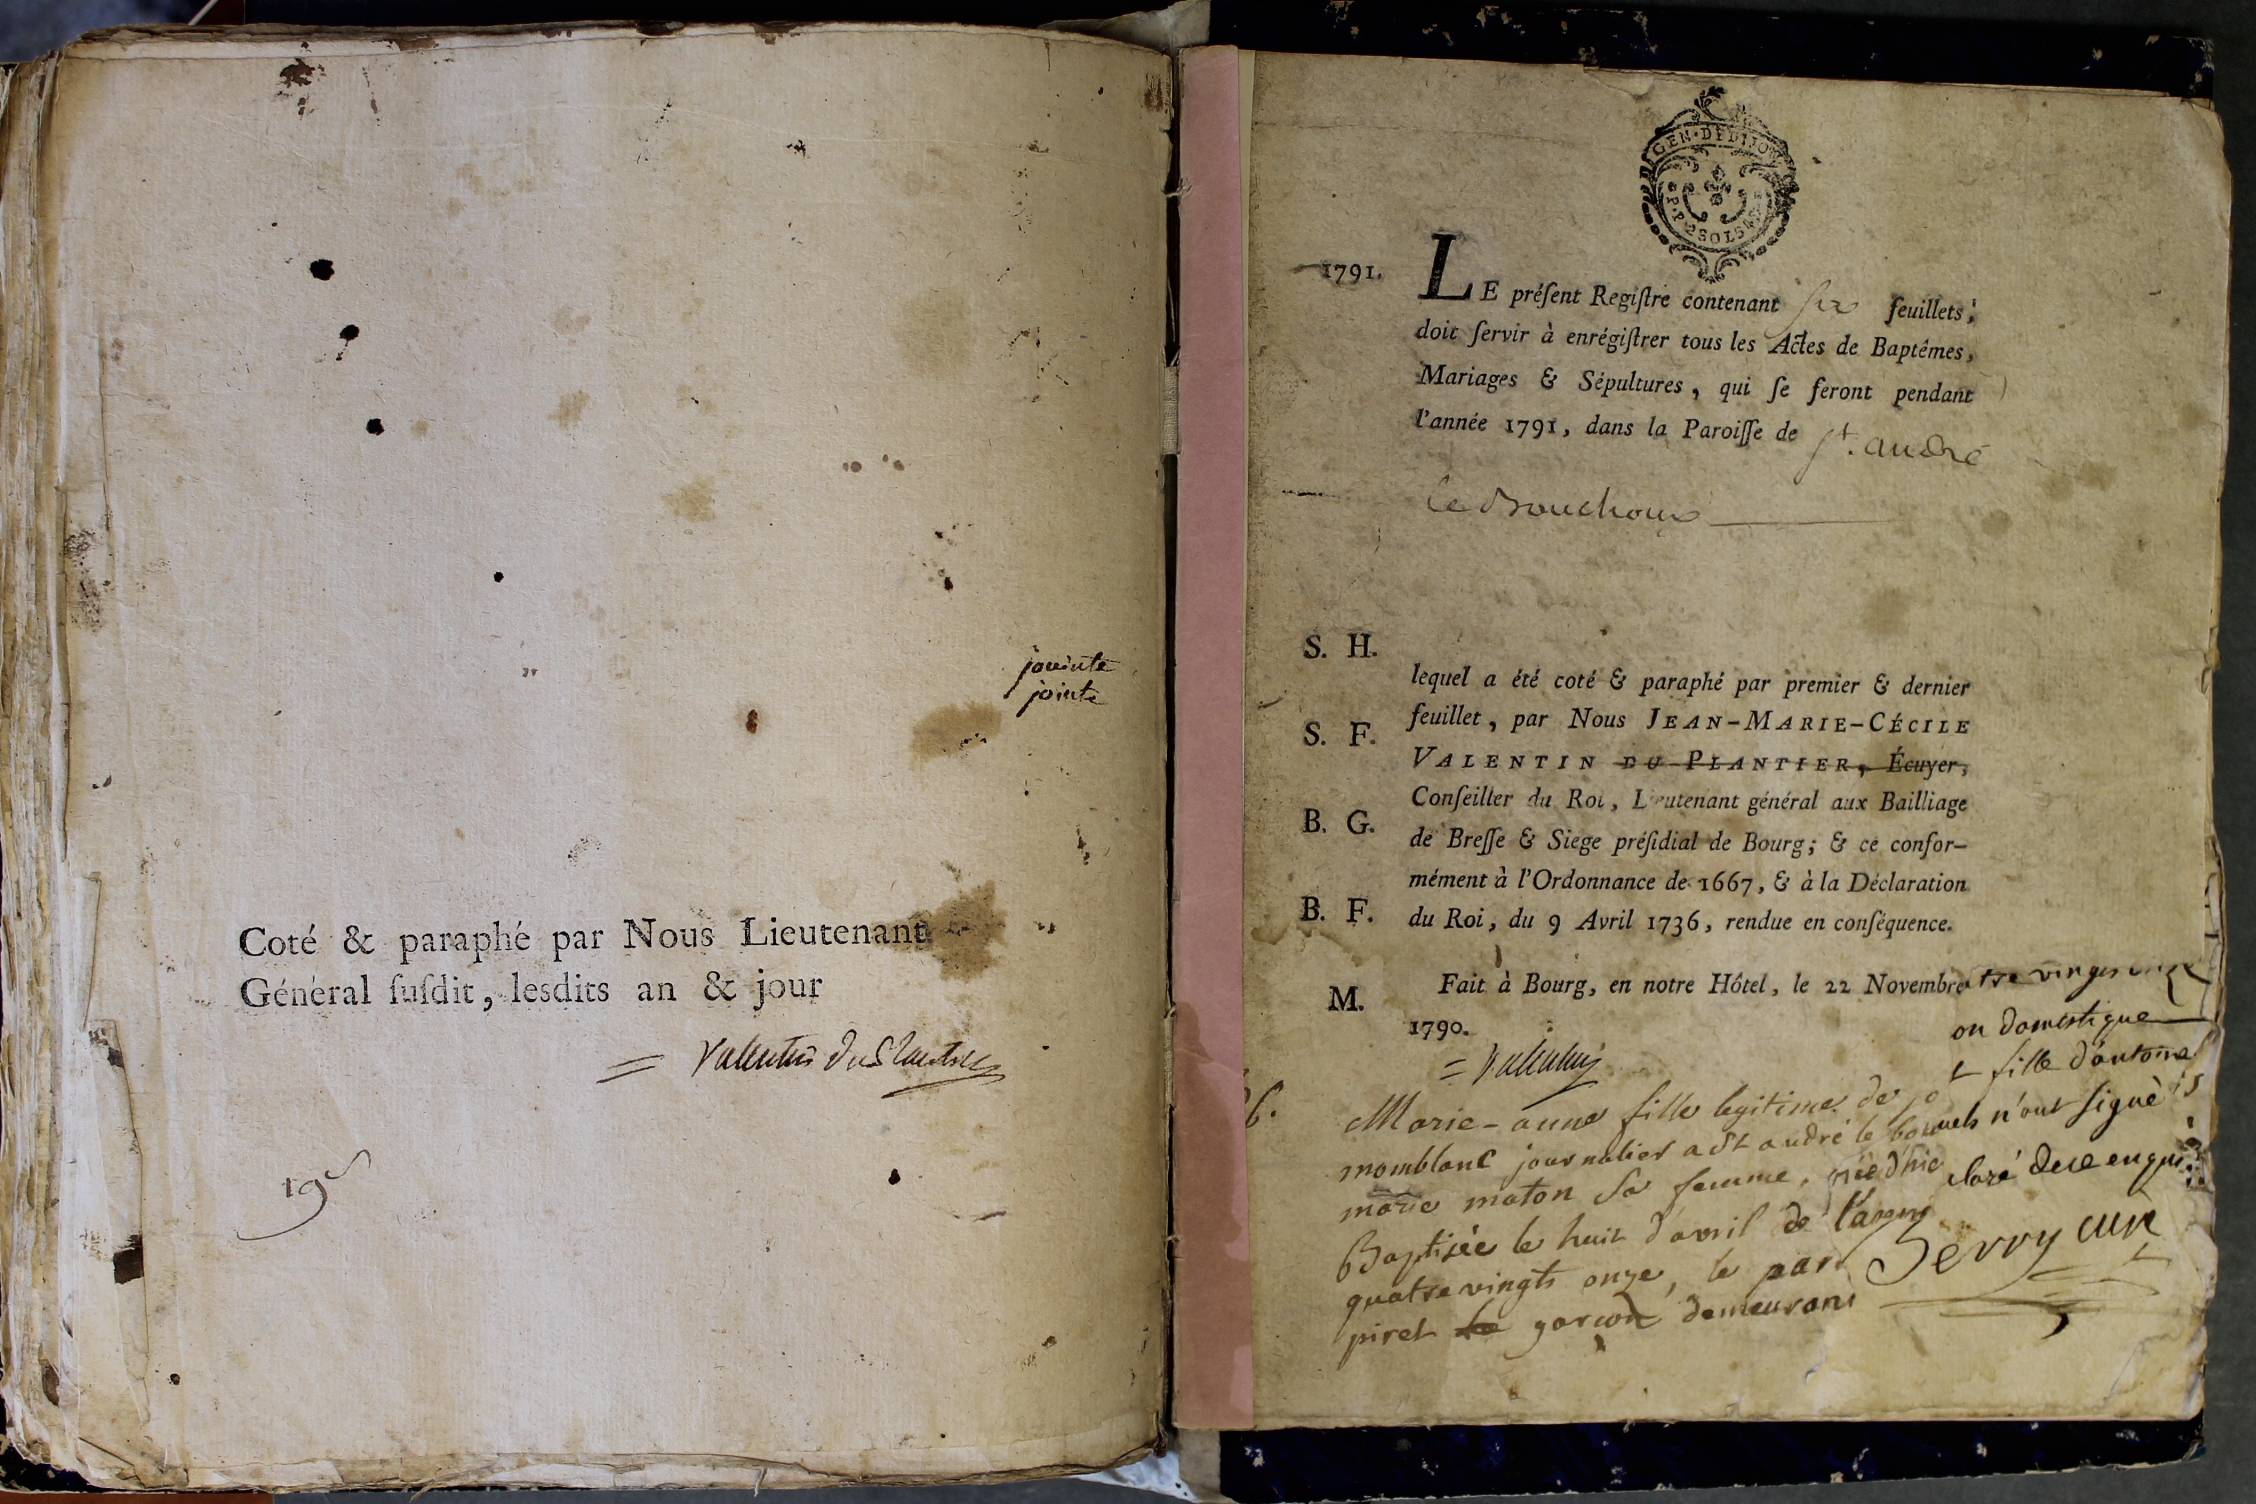 jouinte
jointe
Coté & paraphé par Nous Lieutenant
Général suſdit, lesdits an & jour
= Valentin duPlantier
19e
GEN·DEDIJON
1791.
LE préſent Regiſtre contenant six feuillets,
doit ſervir à enrégiſtrer tous les Actes de Baptêmes,
Mariages & Sépultures, qui ſe feront pendant
l'année 1791, dans la Paroiſſe de St. andré
le Bouchoux
S. H.
lequel a été coté & paraphé par premier & dernier
S. F.
feuillet, par Nous JEAN-MARIE-CÉCILE
VALENTIN DU PLANTIER, Écuyer,
Conſeiller du Roi, Lieutenant général aux Bailliage
B. G.
de Breſſe & Siege préſidial de Bourg; & ce confor-
mément à l'Ordonnance de 1667, & à la Déclaration
B. F.
du Roi, du 9 Avril 1736, rendue en conſéquence.
M.
Fait à Bourg, en notre Hôtel, le 22 Novembre
1790.
= Valentin
tre vingts onze
on domestique
t fille d'antoine
Marie-anne fille legitime de jo
momblanc journalier a st andré le bou
marie moton sa femme, née d'hie
Baptisée le huit d'avril de l'an
quatrevingts onze, le par
piret le garcon demeurant
uels n'ont signè
claré dece enquis
Serry curé